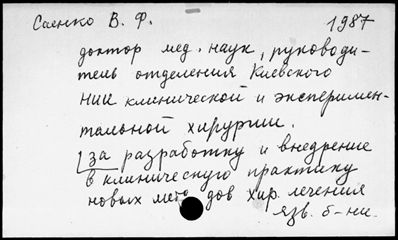 Саенко В. Ф. 1987
доктор мед. наук, руководи-
тель отделения Киевского
НИИ клинической и эксперимен-
тальной хирургии.
за разработку и внедрение
в клиническую практику
новых методов хир. лечения
язв. б-ни.